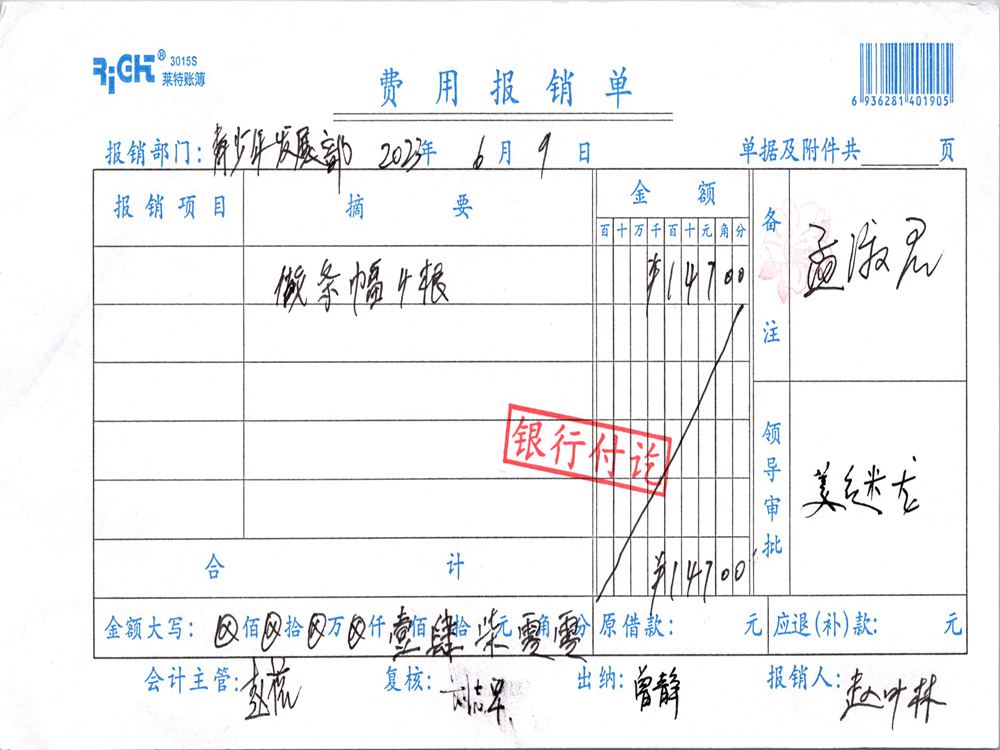 RiGHT® 3015S
莱特账簿
费用报销单
6 936281 401905
报销部门：青少年发展部 2023年 6月 9日 单据及附件共 页
报销项目 摘要 金额 备注
百十万千百十元角分
做条幅4根 ¥14700 孟淑君
银行付讫
领导审批 姜继龙
合计 ¥14700
金额大写：⊗佰⊗拾⊗万⊗仟壹佰肆拾柒元零角零分 原借款： 元 应退(补)款： 元
会计主管：赵蕊 复核：刘志早 出纳：曾静 报销人：赵叶林